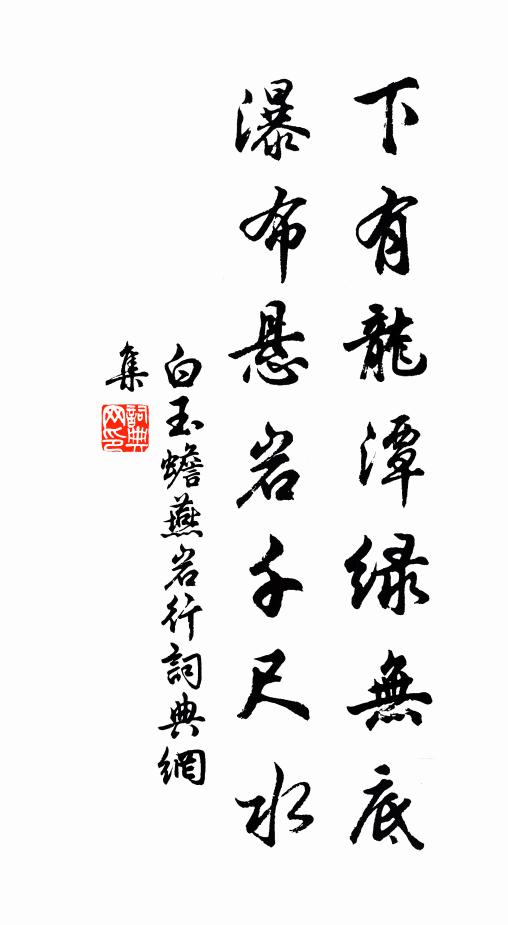 下有龍潭綠無底
瀑布懸岩千尺水
白玉蟾燕岩行詞典網
集
詞典網印